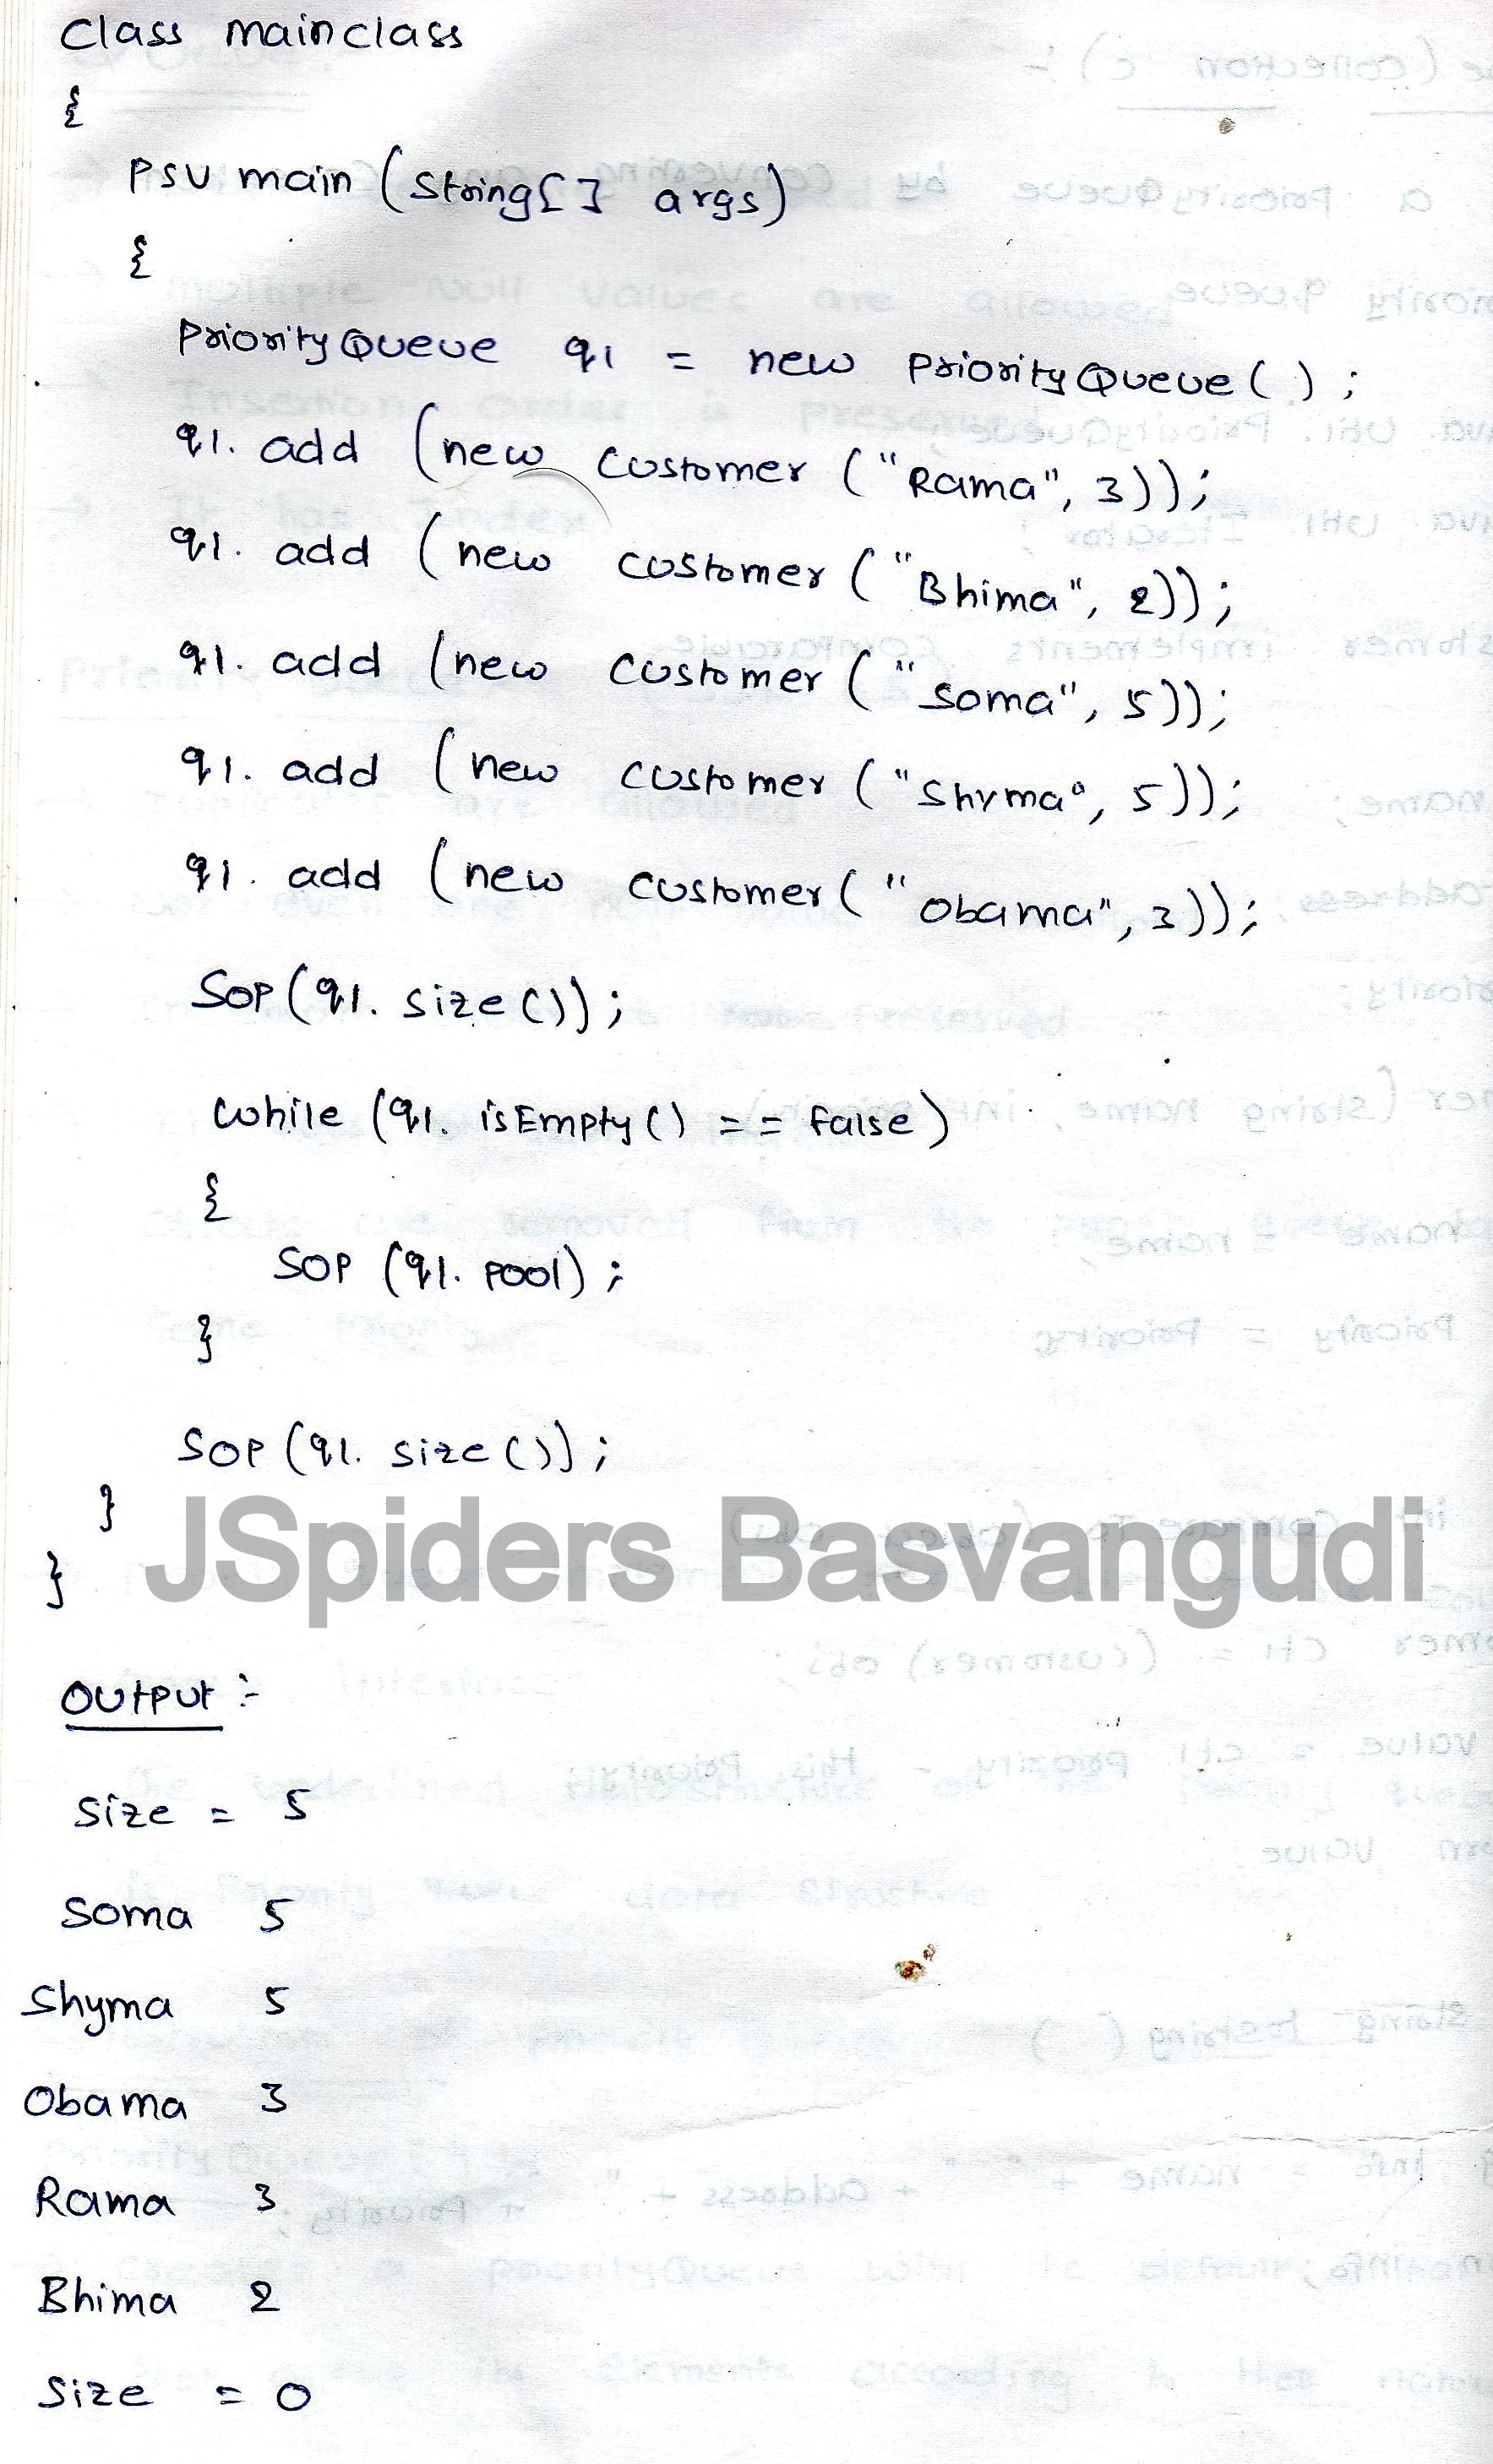 Class mainclass
{
PSV main (String[] args)
{
PriorityQueue q1 = new PriorityQueue();
q1. add (new Customer ("Rama", 3));
q1. add (new customer ("Bhima", 2));
q1. add (new customer ("Soma", 5));
q1. add (new customer ("Shyma", 5));
q1. add (new customer ("Obama", 3));
SOP(q1. size());
while (q1. isEmpty() == false)
{
SOP (q1. pool);
}
SOP(q1. size());
}
}
JSpiders Basvangudi
Output :-
Size = 5
Soma 5
Shyma 5
Obama 3
Rama 3
Bhima 2
Size = 0